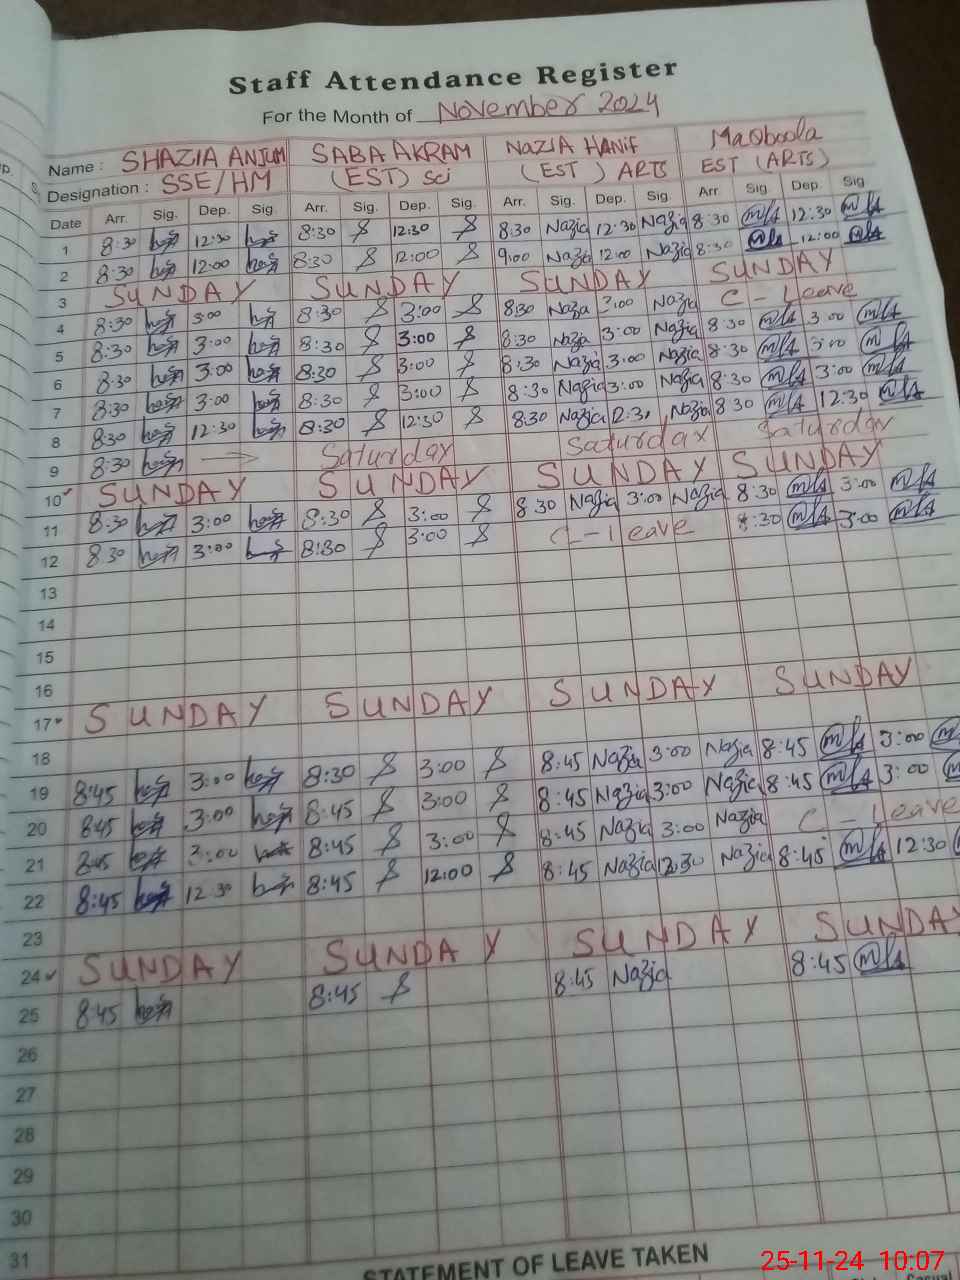 Staff Attendance Register
For the Month of November 2024
Name : SHAZIA ANJUM SABA AKRAM NAZIA HANIF MaQboola
Designation : SSE/HM (EST) Sci (EST) ARTS EST (ARTS)
Date Arr. Sig. Dep. Sig. Arr. Sig. Dep. Sig. Arr. Sig. Dep. Sig. Arr. Sig. Dep. Sig
1 8:30 12:30 8:30 12:30 8:30 Nazia 12:30 Nazia 8:30 12:30
2 8:30 12:00 8:30 12:00 9:00 Nazia 12:00 Nazia 8:30 12:00
3 SUNDAY SUNDAY SUNDAY SUNDAY
4 8:30 3:00 8:30 3:00 8:30 Nazia 3:00 Nazia C-Leave
5 8:30 3:00 8:30 3:00 8:30 Nazia 3:00 Nazia 8:30 3:00
6 8:30 3:00 8:30 3:00 8:30 Nazia 3:00 Nazia 8:30 3:00
7 8:30 3:00 8:30 3:00 8:30 Nazia 3:00 Nazia 8:30 3:00
8 8:30 12:30 8:30 12:30 8:30 Nazia 12:30 Nazia 8:30 12:30
9 8:30 Saturday Saturday Saturday
10 SUNDAY SUNDAY SUNDAY SUNDAY
11 8:30 3:00 8:30 3:00 8:30 Nazia 3:00 Nazia 8:30 3:00
12 8:30 3:00 8:30 3:00 C-Leave 8:30 3:00
13
14
15
16
17 SUNDAY SUNDAY SUNDAY SUNDAY
18
19 8:45 3:00 8:30 3:00 8:45 Nazia 3:00 Nazia 8:45 3:00
20 8:45 3:00 8:45 3:00 8:45 Nazia 3:00 Nazia 8:45 3:00
21 8:45 3:00 8:45 3:00 8:45 Nazia 3:00 Nazia C-Leave
22 8:45 12:30 8:45 12:00 8:45 Nazia 12:30 Nazia 8:45 12:30
23
24 SUNDAY SUNDAY SUNDAY SUNDAY
25 8:45 8:45 8:45 Nazia 8:45
26
27
28
29
30
31
STATEMENT OF LEAVE TAKEN
25-11-24 10:07